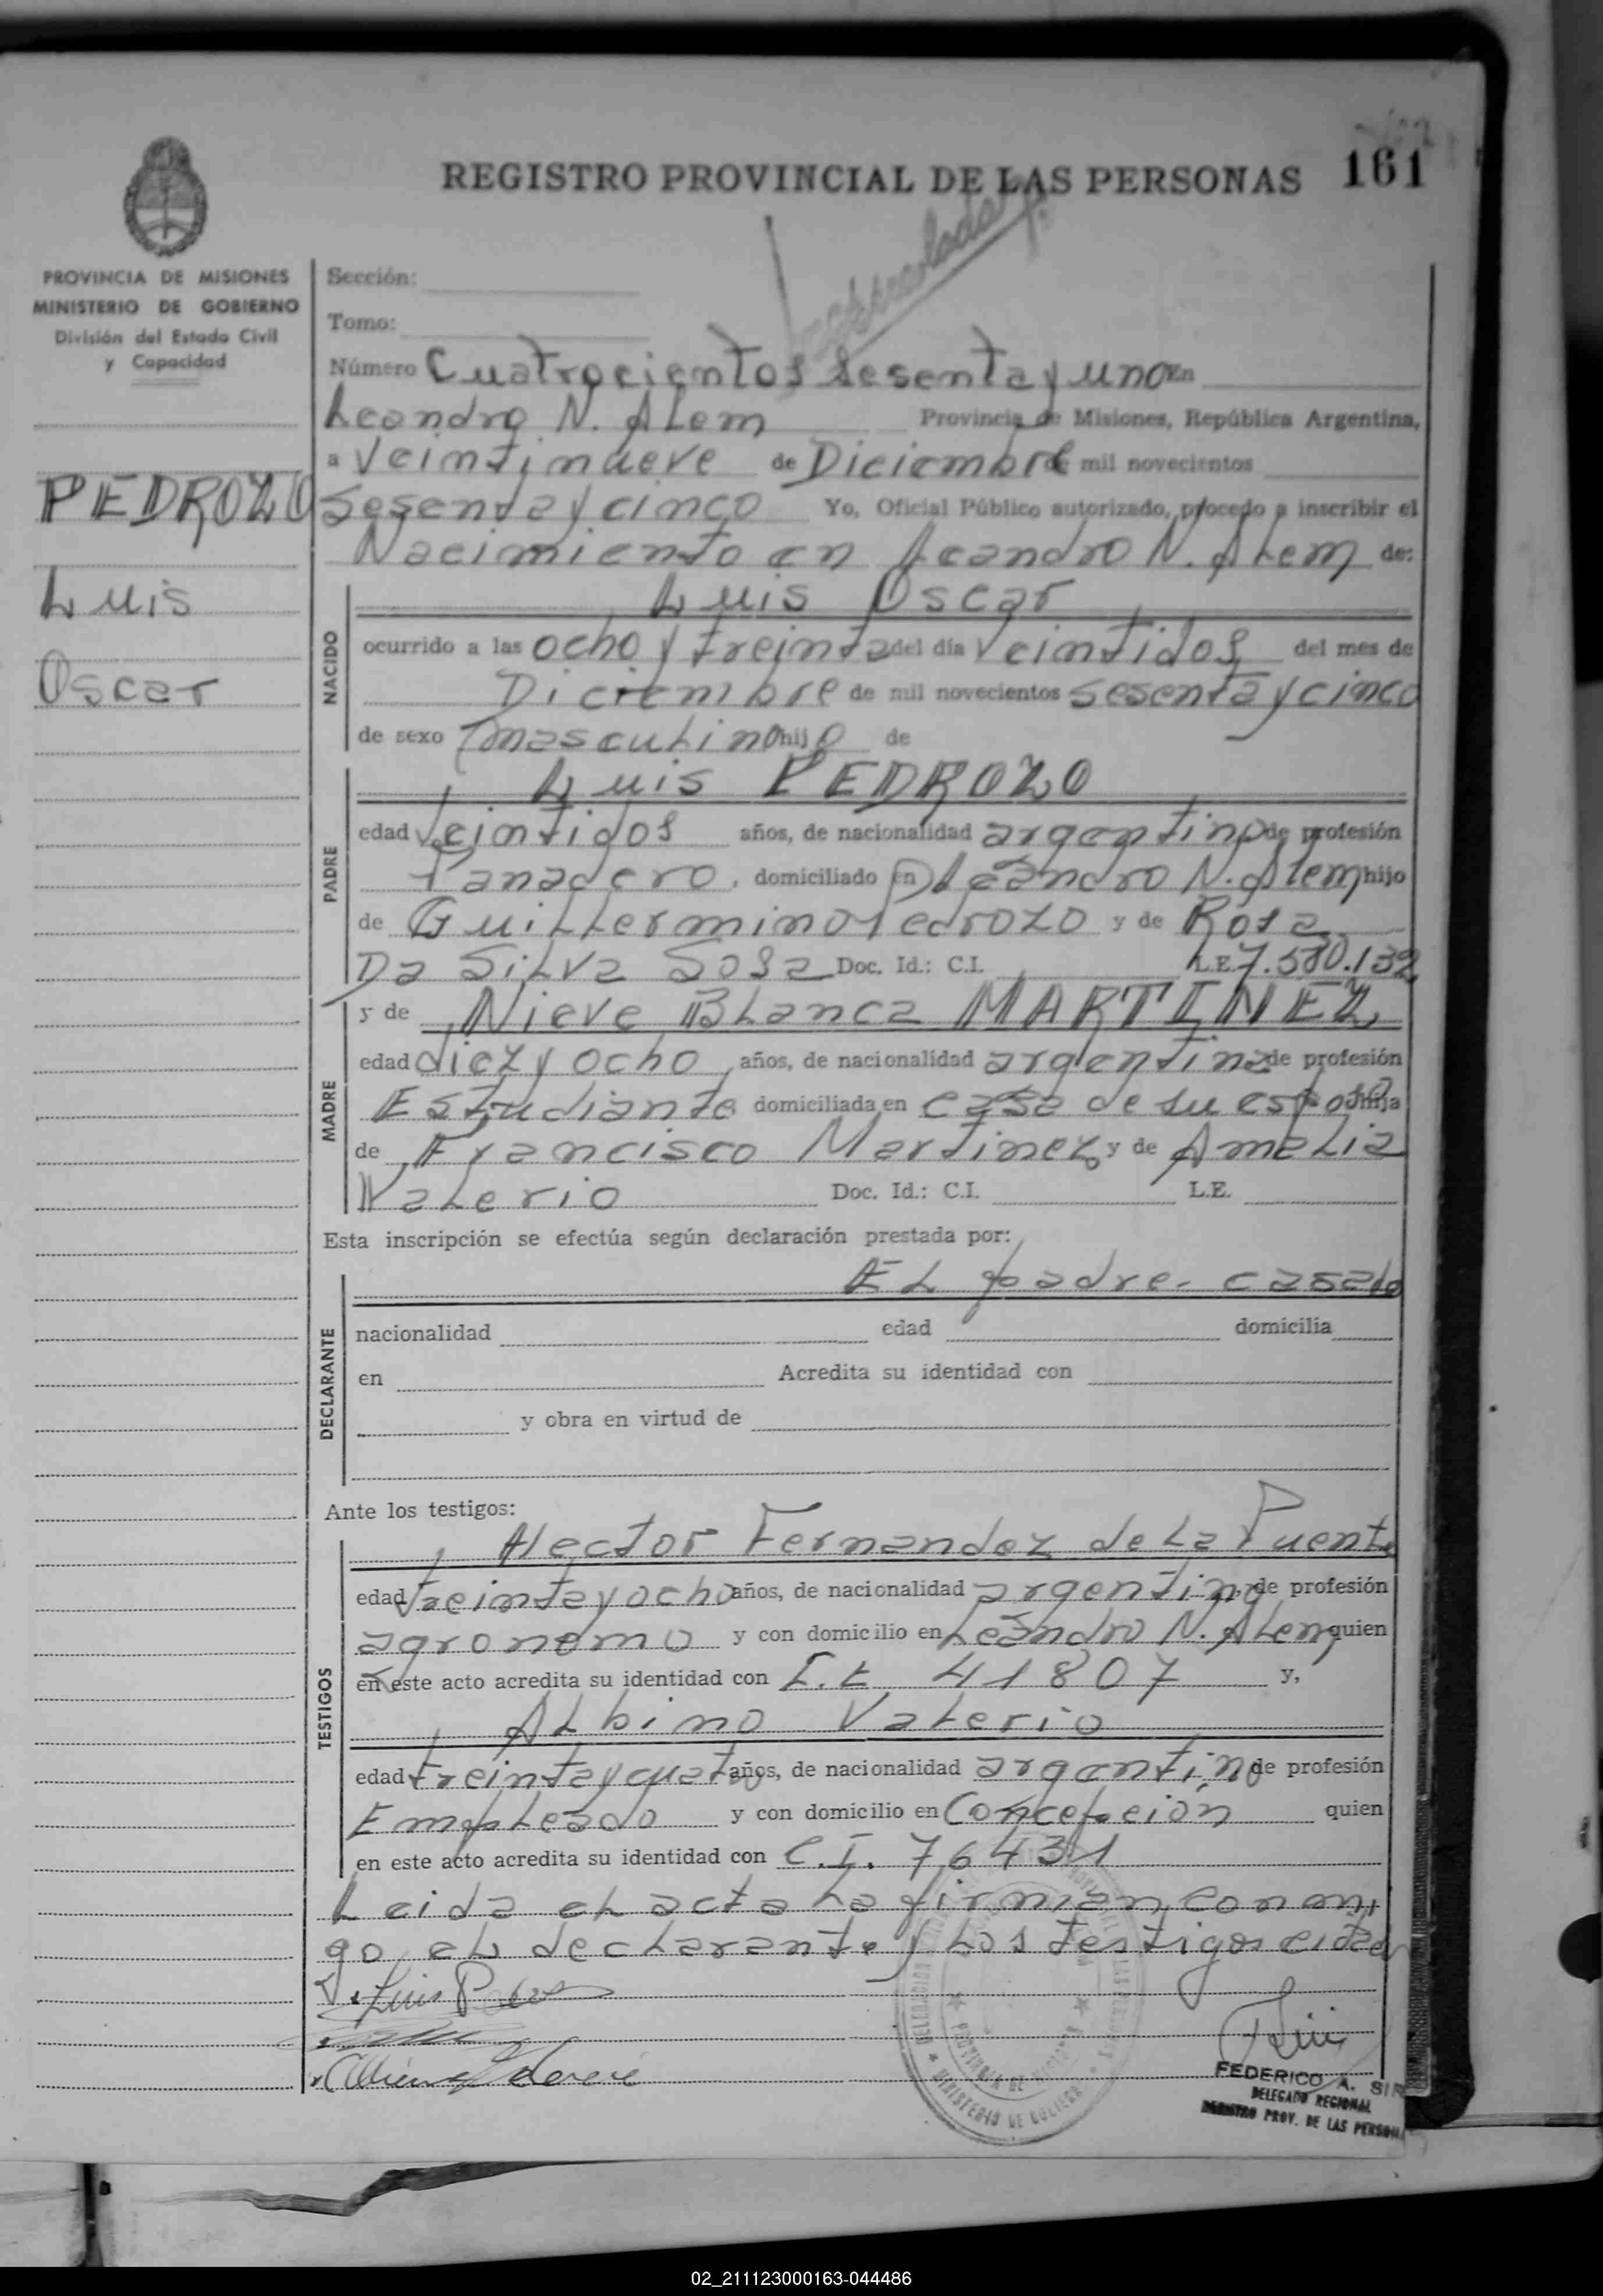 REGISTRO PROVINCIAL DE LAS PERSONAS 161
PROVINCIA DE MISIONES
MINISTERIO DE GOBIERNO
División del Estado Civil
y Capacidad
PEDROZO
Luis
Oscar
Sección:
Tomo:
Número Cuatrocientos sesenta y uno En
Leandro N. Alem Provincia de Misiones, República Argentina,
a Veintinueve de Diciembre de mil novecientos
Sesenta y cinco Yo, Oficial Público autorizado, procedo a inscribir el
Nacimiento en Leandro N. Alem de:
NACIDO
Luis Oscar
ocurrido a las ocho y treinta del día Veintidos del mes de
Diciembre de mil novecientos sesenta y cinco
de sexo masculino hijo de
PADRE
Luis PEDROZO
edad Veintidos años, de nacionalidad argentino de profesión
Panadero, domiciliado en Leandro N. Alem hijo
de Guillermino Pedrozo y de Rosa
Da Silva Sosa Doc. Id.: C.I. L.E. 7.580.132
MADRE
y de Nieve Blanca MARTINEZ
edad diez y ocho años, de nacionalidad argentina de profesión
Estudiante domiciliada en casa de su esposo hija
de Francisco Martinez y de Amelia
Valerio Doc. Id.: C.I. L.E.
Esta inscripción se efectúa según declaración prestada por:
DECLARANTE
EL padre- casado
nacionalidad edad domicilia
en Acredita su identidad con
y obra en virtud de
Ante los testigos:
TESTIGOS
Hector Fernandez de La Puente
edad treinta y ocho años, de nacionalidad argentino de profesión
agronomo y con domicilio en Leandro N. Alem quien
en este acto acredita su identidad con 41807 y,
Albino Valerio
edad treinta y cuatro años, de nacionalidad argentino de profesión
Empleado y con domicilio en Concepcion quien
en este acto acredita su identidad con C.I. 76431
Leida el acta la firman conmi
go el declarante y los testigos
Luis
FEDERICO A.
DELEGADO REGIONAL
REGISTRO PROV. DE LAS
02_211123000163-044486